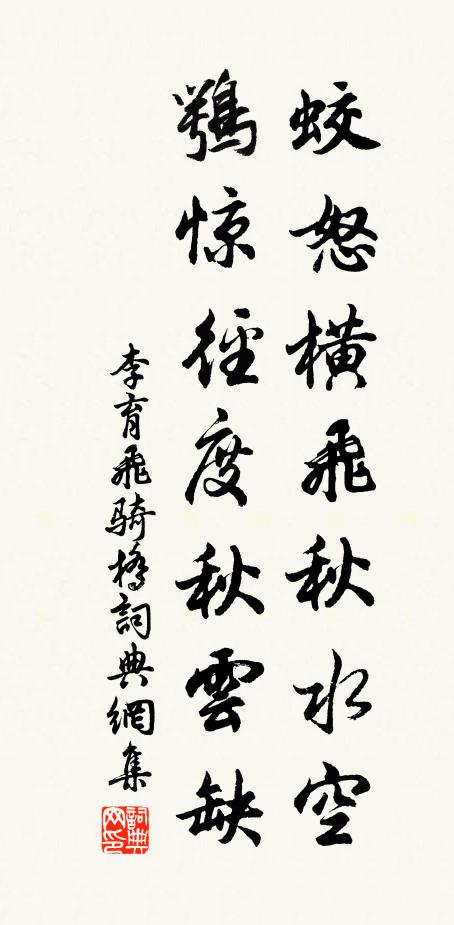 蛟怒橫飛秋水空
鶚惊徑度秋雲缺
李育飛骑橋詞典網集
詞典网印